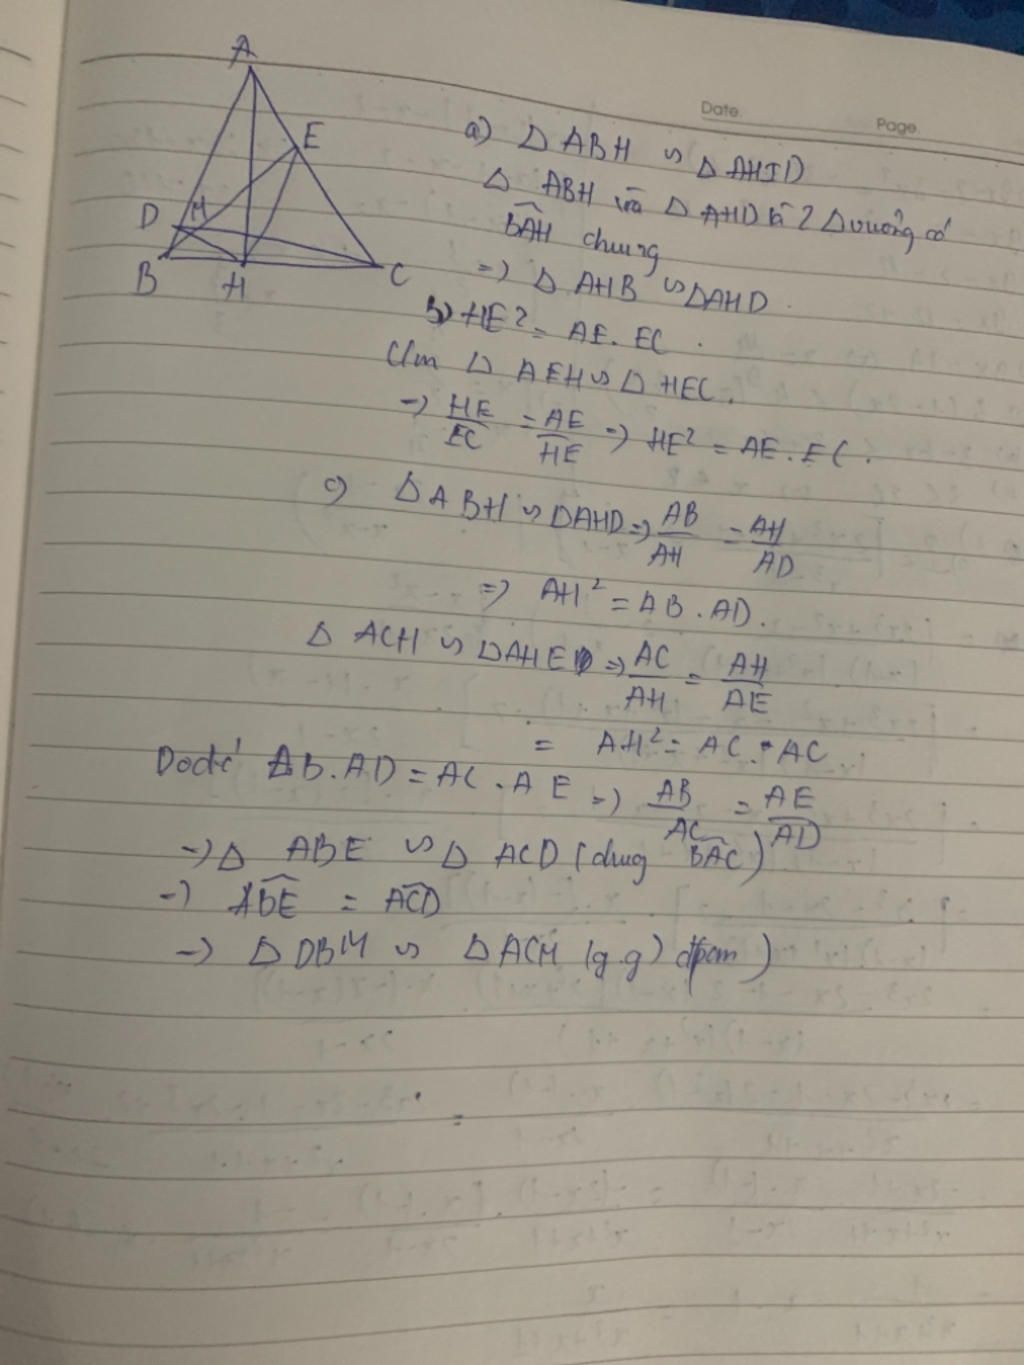 A
E
D
M
B
H
C
Date.
Page.
a) Δ ABH ∽ Δ AHD
Δ ABH và Δ AHD là 2 Δ vuông có
BAH chung
=) Δ AHB ∽ ΔAHD.
b) HE² = AE. EC.
C/m Δ AEH ∽ Δ HEC.
=) HE/EC = AE/HE =) HE² = AE. EC.
c) Δ ABH ∽ ΔAHD =) AB/AH = AH/AD
=) AH² = AB. AD.
Δ ACH ∽ ΔAHE =) AC/AH = AH/AE
= AH² = AC. AC.
Do đó AB. AD = AC. AE =) AB/AC = AE/AD
=) Δ ABE ∽ Δ ACD (chug BAC)
=) ABE = ACD
=) Δ DBM ∽ Δ ACM (g.g) đpcm)
=